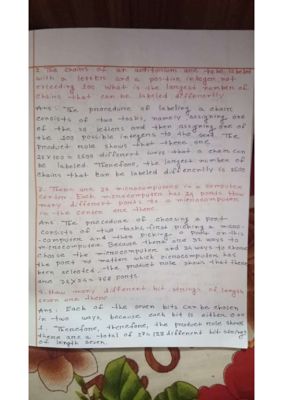 1. The chains of an auditorium are to be labeled
with a letters and a positive integen not
exceeding 100. What is the langest number of
chains that can be labeled differently
Ans: The procedure of labeling a chain
consists of two tasks, namely assigning one
of the 26 letters and then assigning one of
the 100 possible integens to the seat. The
product rule shows that there are
26×100 = 2600 different ways that a chain can
be labeled. Therefore, the langest number of
chains that can be labeled differently is 2600
2. There are 32 minocomputers in a computer
center. Each minocomputer has 24 ponts. How
many different ponts to a minocomputer
in the center are there
Ans: The procedure of choosing a pont
consists of two tasks, first picking a mino-
-computer and then picking a pont on this
minocomputer. Because there are 32 ways to
choose the minocomputer and 24 ways to choose
the pont no matter which minocomputer has
been selected, the product rule shows that there
are 32×24 = 768 ponts.
3. How many different bit strings of length
seven are there
Ans: Each of the seven bits can be chosen
in two ways, because each bit is either 0 or
1. Therefore, therefore, the product rule shows
there are a total of 27=128 different bit strings
of length seven.